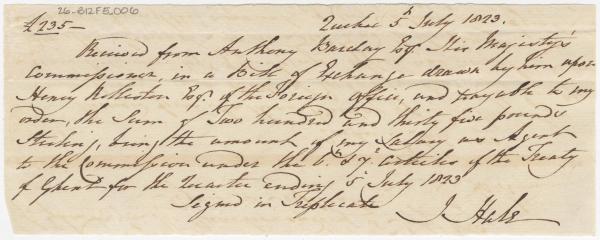 26-B12F5,006
£235— Quebec 5th July 1823.
Received from Anthony Barclay Esqr. His Majesty's
Commissioner, in a Bill of Exchange drawn by him upon
Henry Rolleston Esqr. of the Foreign Office, and payable to my
order, the Sum of Two hundred and thirty five pounds
Sterling, being the amount of my Salary as Agent
to the Commission under the 6th & 7th articles of the Treaty
of Ghent for the Quarter ending 5th July 1823
Signed in Triplicate
J. Hale